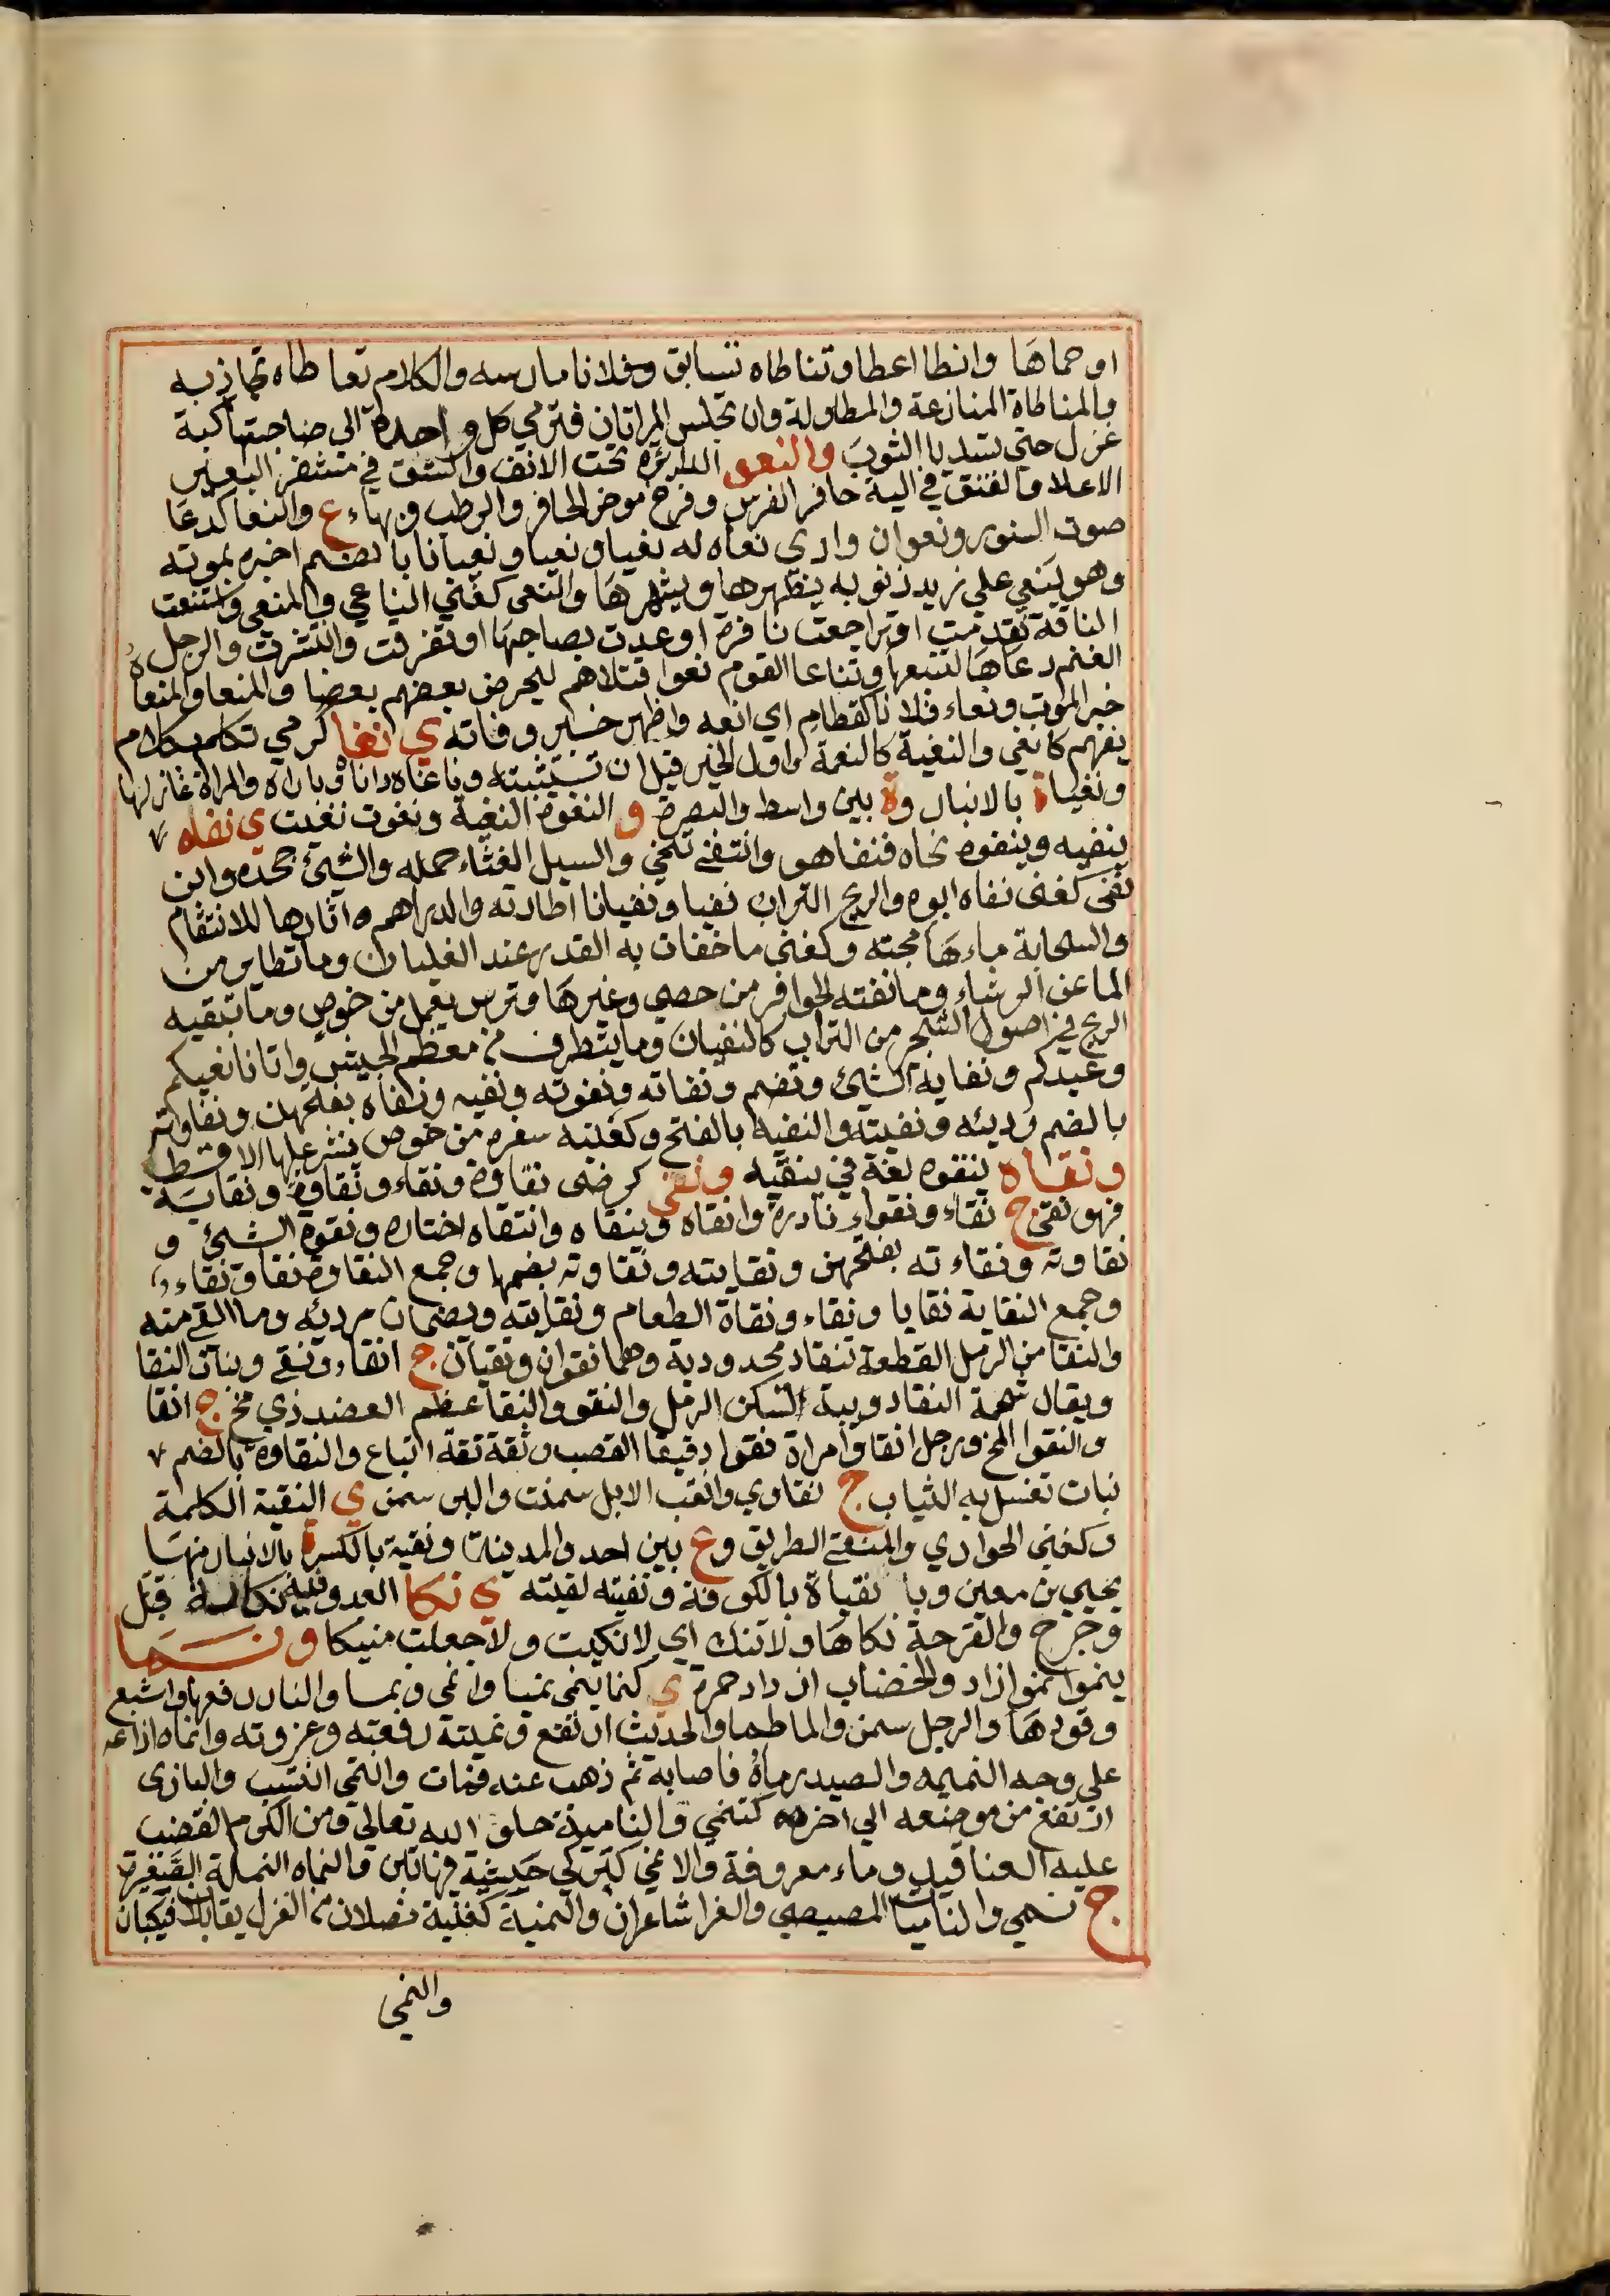 او حماها وانطا اعطا وتناطاه تسابق وفلانا مارسه والكلام تعاطاه تجاذبه
والمناطاة المنازعة والمطاولة وان تجلس المراتان فترمي كل واحدة الى صاحبتها كبة
غزل حتى تسديا الثوب والنعو الدائرة تحت الانف والشق في مشفر البعير
الاعلا والفتق في الية حافر الفرس وفرج موخر الحافر والرطب وبهاء ع والنعا كدعا
صوت السنور ونعوان وادي نعاه له نعيا ونعيا ونعيانا بالضم اخبره بموته
وهو ينعي علي زيد ذنوبه يظهرها ويشهرها والنعى كغني الناعي والمنعى واستنعت
الناقة تقدمت او تراجعت نافرة او عدت بصاحبها او تفرقت وانتشرت والرجل
الغنم دعاها لتتبعه وتناعا القوم نعوا قتلاهم ليحرض بعضهم بعضا والمنعا والمنعاة
خبر الموت ونعاء فلانا كقطام اي انعه واظهر خبر وفاته ي نغا كرمي تكلم بكلام
يفهم كانغي والنغية كالنغمة واول الخبر قبل ان تستثبته وناغاه داناه وباراه والمراة غازلها
ونغياة بالانبار وة بين واسط والبصرة و النغوة النغية ونغوت نغيت ي نفاه
ينفيه وينفوه نحاه فنفا هو وانتفى تنحي والسيل الغثاء حمله والشيئ جحده وابن
نفي كغنى نفاه ابوه والريح التراب نفيا ونفيانا اطارته والدراهم اثارها للانتقام
والسحابة ماءها مجته وكغني ما خفات به القدر عند الغليان وما تطاير من
الما عن الرشاء وما نفته الحوافر من حصي وغيرها وترس يعمل من خوص وما تبقيه
الريح في اصول الشجر من التراب كالنفيان وما يتطرف من معظم الجيش واتانا نفيكم
وعيدكم ونفاية الشيئ وتضم ونفاته ونفوته ونفيه ونفاه بفتحهن ونفاوته
بالضم رديئه ونفيته والنفيه بالفتح وكغنيه سفره من خوص ينشر عليها الاقط
ونقاه ينقوه لغة في ينقيه ونقي كرضى نقاوة ونقاء ونقاوة ونقاية
فهو نقي ج نقاء ونقواء نادرة وانقاه وتنقاه وانتقاه اختاره ونقوة الشيئ و
نقاوته ونقاءته بفتحهن ونقايته ونقاوته بضمها وجمع النقاوة نقا ونقاء
وجمع النقاية نقايا ونقاء ونقاة الطعام ونقايته ويضمان رديئه وما القي منه
والنقا من الرمل القطعة تنقاد محدودبة وهما نقوان ونقيان ج انقاء ونقي وبنات النقا
ويقال شحمة النقا دويبة تسكن الرمل والنقو والنقا عظم العضد ذي مخ ج انقا
والنقوا المخ ورجل انقا وامراة نقوا دقيقا القصب وثقة نقة اتباع والنقاوة بالضم
نبات تغسل به الثياب ج نقاوي وانقت الابل سمنت والبر سمن ي النقية الكلمة
وكغني الحواري والمنقي الطريق وع بين احد والمدينة ونقية بالكسرة بالانبار منها
يحيي بن معين وبا نقياة بالكوفة ونقيته لقيته ي نكا العدو وفيه نكاية قتل
وجرح والقرحة نكاها ولا تنك اي لا نكيت ولا جعلت منيكا ونما
ينموا نموا زاد والخضاب ازداد حمرة ي كنما ينمي نميا وانمي ونما والنار رفعها واشبع
وقودها والرجل سمن والما طما والحديث ارتفع ونميته رفعته وعزوته وانماه اذاعه
علي وجه النميمه والصيد رماه فاصابه ثم ذهب عنه فمات وانتمي انتسب والبازي
ارتفع من موضعه الي اخره كتنمي والنامية خلق الله تعالي ومن الكرم القضيب
عليه العناقيد وماء معروفة والانمي كتركي حبيثية والنماه النملة الصغيرة
ج نمي والناميات المصيصي والغزا شاعران والنمية كغنية نصلان من الغزل يقابلان فيكبان
والنمي